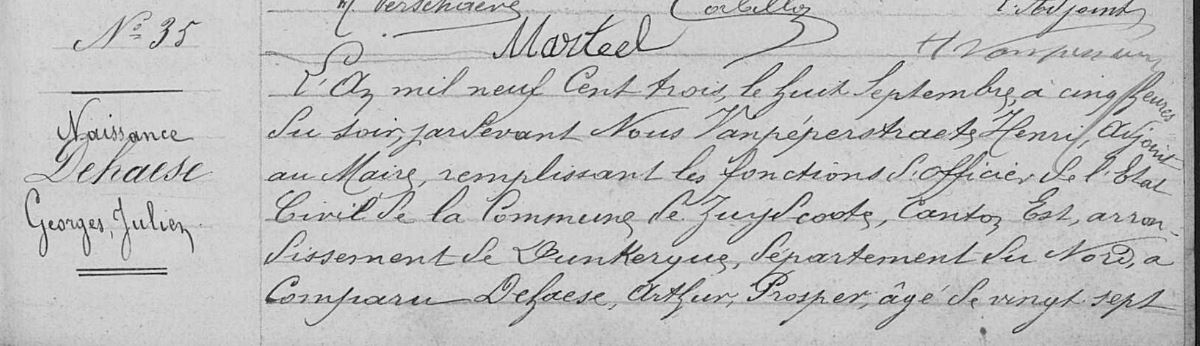 N° 35
Naissance
Dehaese
Georges, Julien
Verschaeve
l'Adjoint
Marteel
L'An mil neuf Cent trois, le huit Septembre, à cinq heures
du soir, pardevant Nous Vanpéperstraete, Henri, Adjoint
au Maire, remplissant les fonctions d'officier de l'Etat
Civil de la Commune de Zuydcoote, Canton Est, arron-
dissement de Dunkerque, département du Nord, a
Comparu Dehaese, Arthur, Prosper, âgé de vingt sept